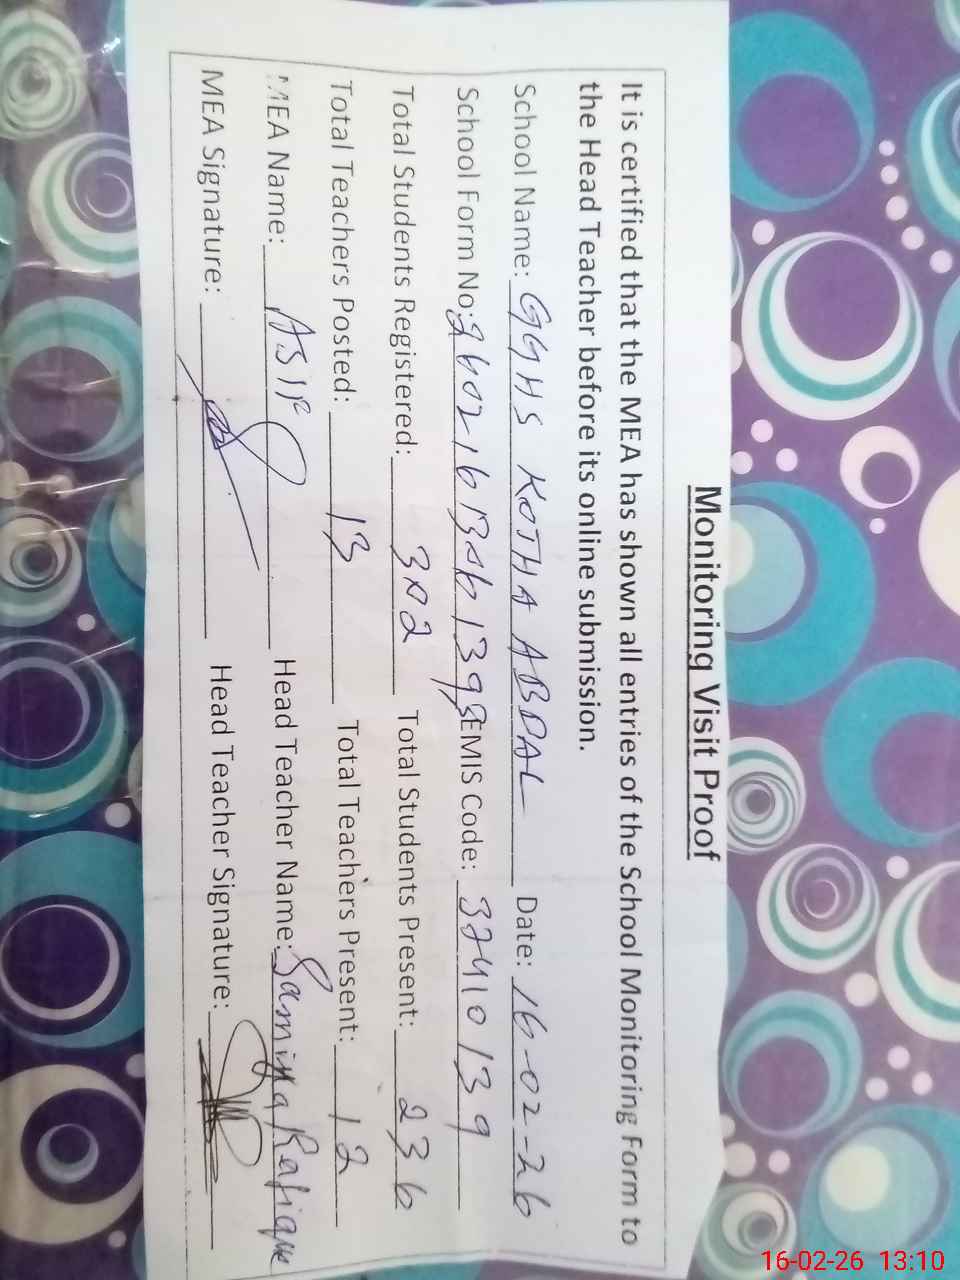 Monitoring Visit Proof
It is certified that the MEA has shown all entries of the School Monitoring Form to
the Head Teacher before its online submission.
School Name: GGHS KOTHA ABDAL Date: 16-02-26
School Form No: EMIS Code: 37410139
Total Students Registered: 302 Total Students Present: 236
Total Teachers Posted: 13 Total Teachers Present: 12
MEA Name: ASIF Head Teacher Name: Samiya Rafique
MEA Signature: Head Teacher Signature:
16-02-26 13:10